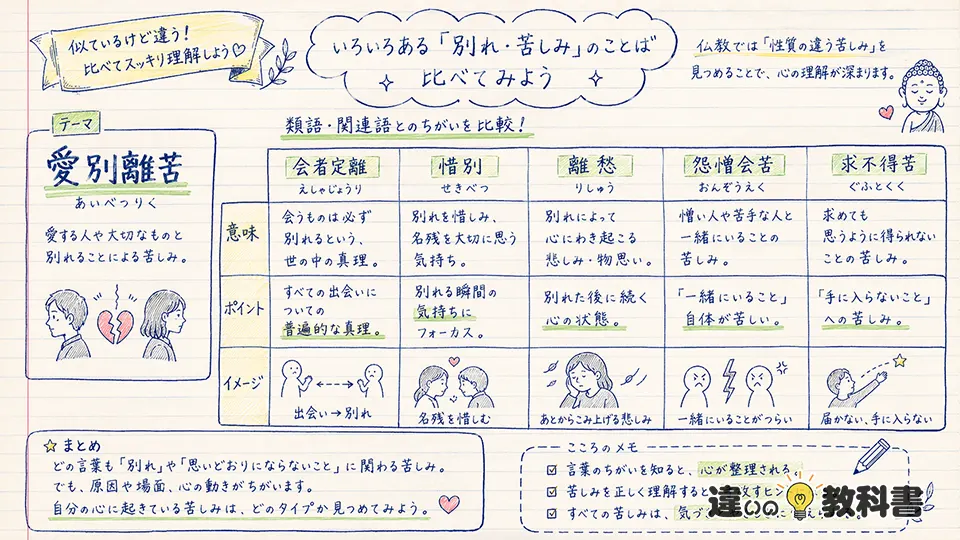 似ているけど違う!
比べてスッキリ理解しよう♡
いろいろある「別れ・苦しみ」のことば
比べてみよう
仏教では「性質の違う苦しみ」を
見つめることで、心の理解が深まります。
テーマ
愛別離苦
あいべつりく
愛する人や大切なものと
別れることによる苦しみ。
類語・関連語とのちがいを比較!
会者定離
えしゃじょうり
惜別
せきべつ
離愁
りしゅう
怨憎会苦
おんぞうえく
求不得苦
ぐふとくく
意味
会うものは必ず
別れるという、
世の中の真理。
別れを惜しみ、
名残を大切に思う
気持ち。
別れによって
心にわき起こる
悲しみ・物思い。
憎い人や苦手な人と
一緒にいることの
苦しみ。
求めても
思うように得られない
ことの苦しみ。
ポイント
すべての出会いに
ついての
普遍的な真理。
別れる瞬間の
気持ちに
フォーカス。
別れた後に続く
心の状態。
「一緒にいること」
自体が苦しい。
「手に入らないこと」
への苦しみ。
イメージ
出会い→別れ
名残を惜しむ
あとからこみ上げる悲しみ
一緒にいることがつらい
届かない、手に入らない
まとめ
どの言葉も「別れ」や「思いどおりにならないこと」に関わる苦しみ。
でも、原因や場面、心の動きがちがいます。
自分の心に起きている苦しみは、どのタイプか見つめてみよう。
こころのメモ
言葉のちがいを知ると、心が整理される。
苦しみを正しく理解すると
すべての苦しみは、気づ
違いの教科書